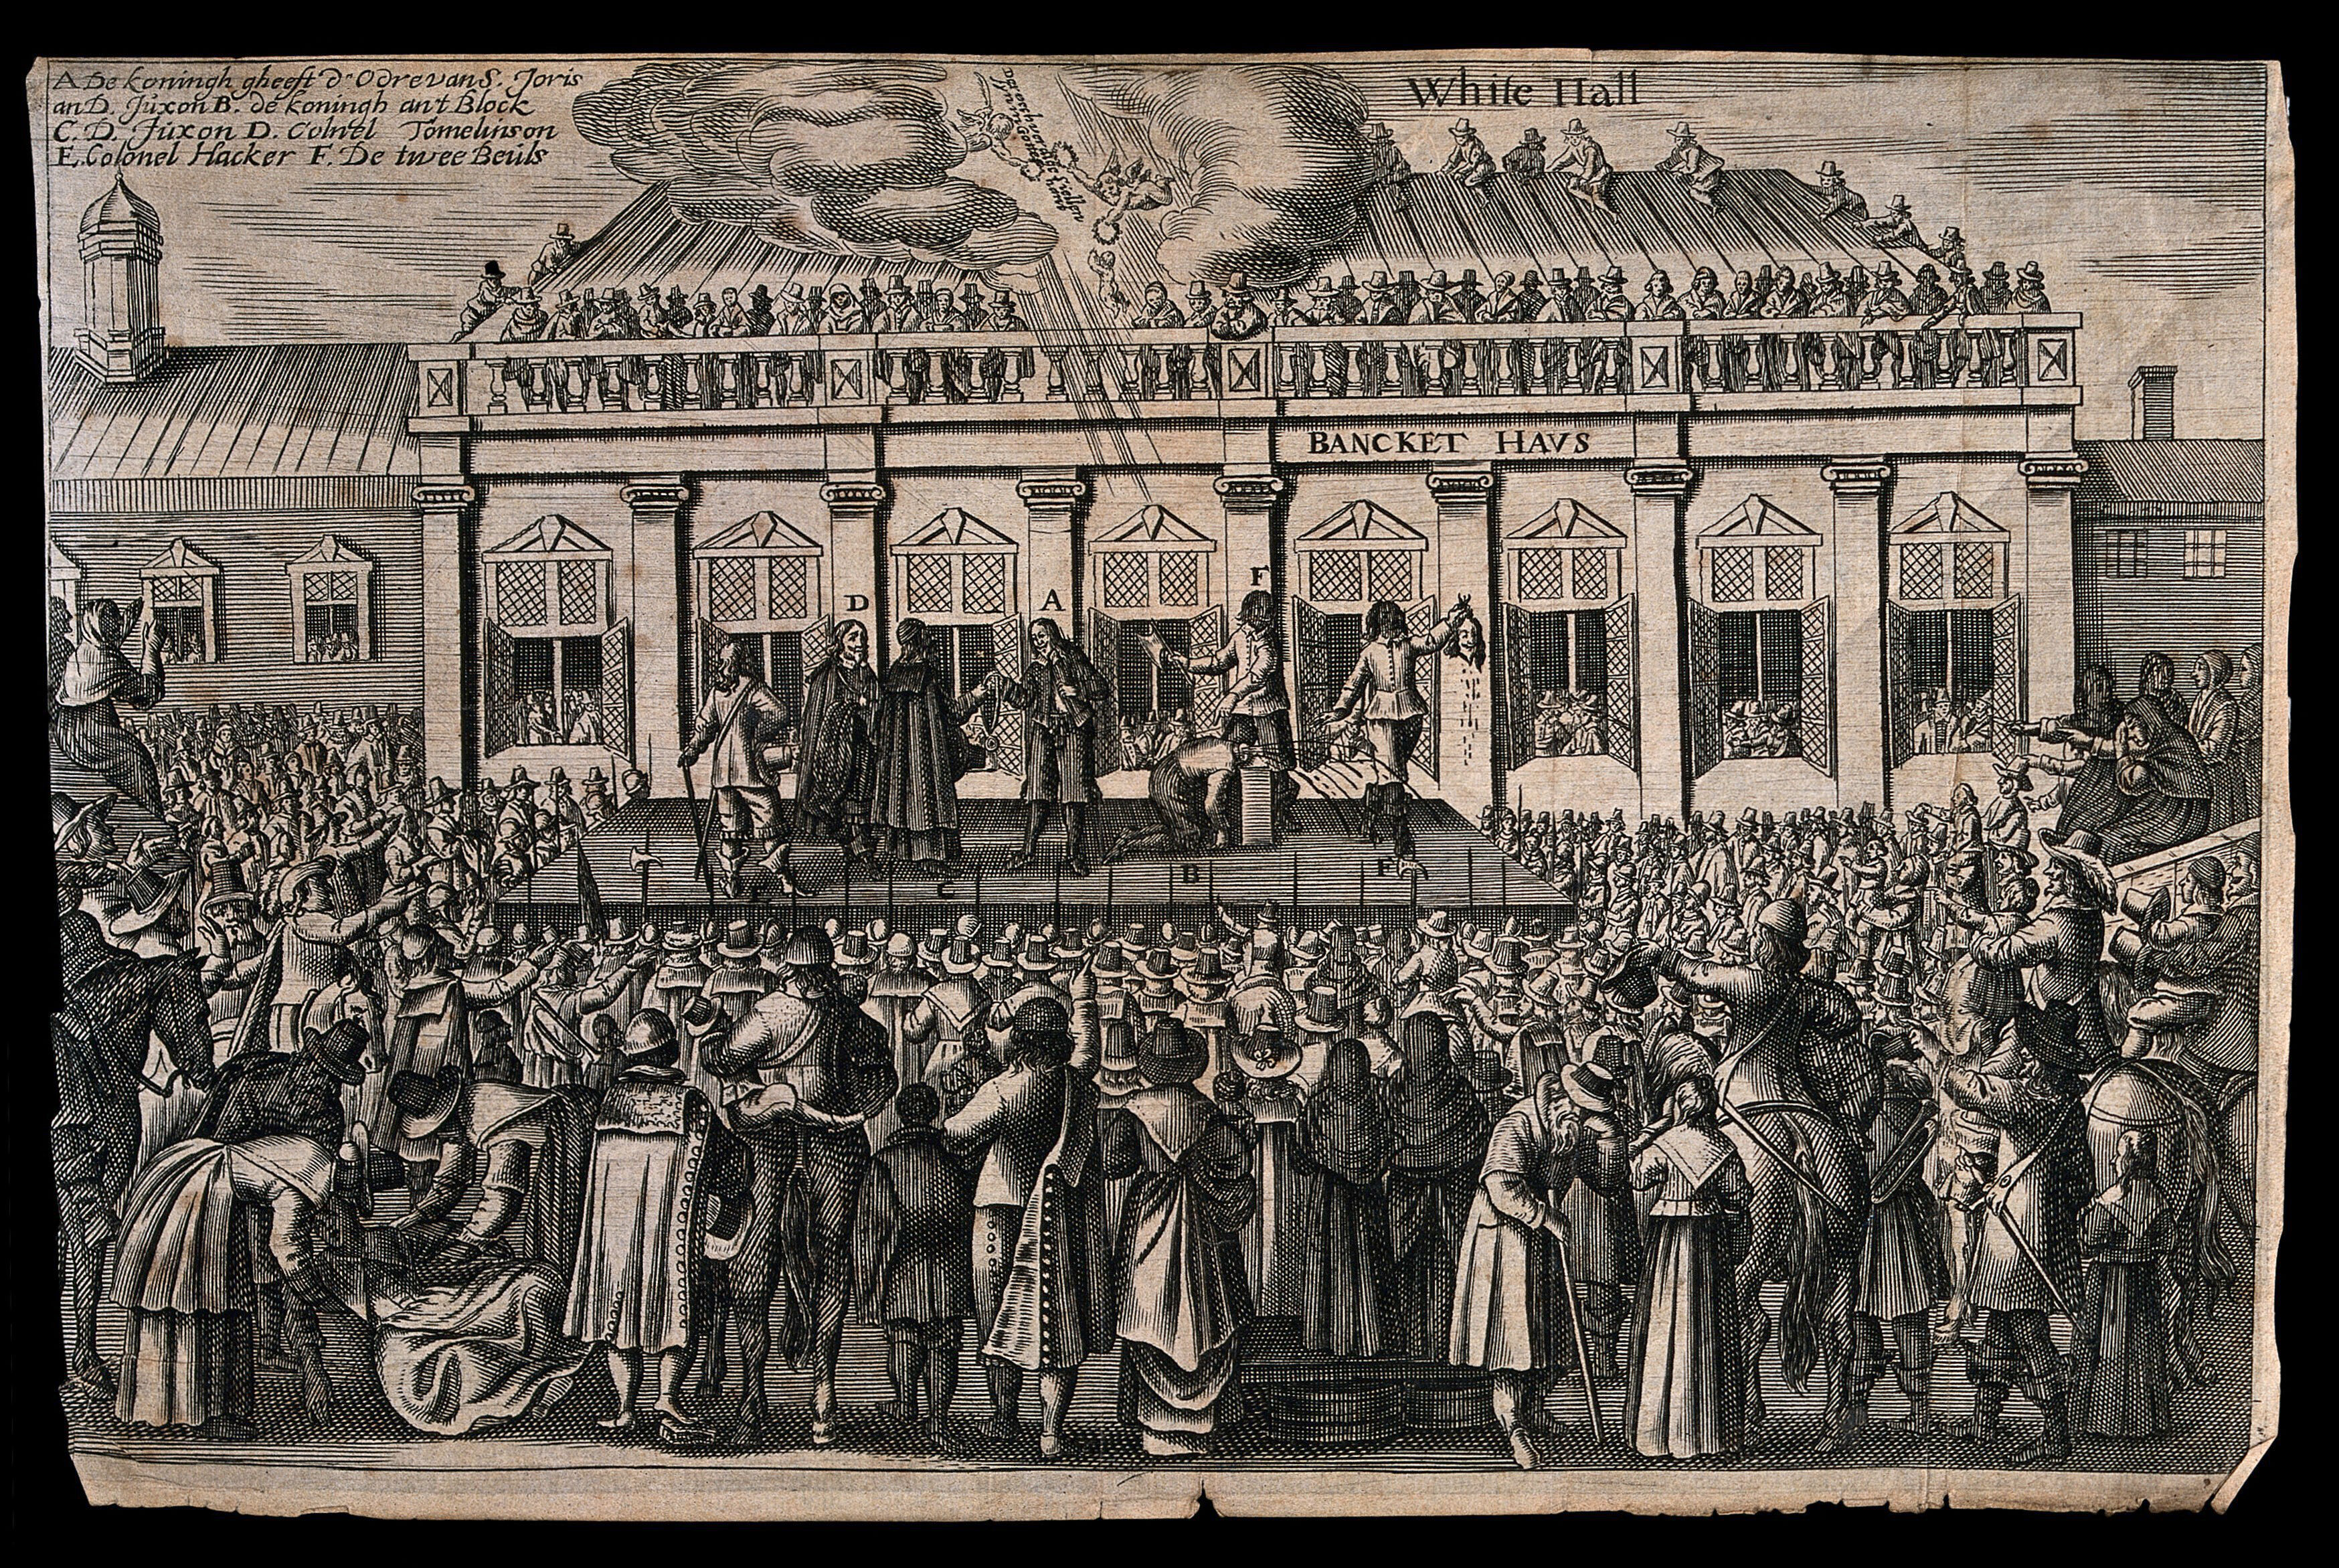 A De koningh gheeft d'Odre van S. Joris
an D. Juxon B. de koningh an't Block
C. D. Juxon D. Colnel Tomelinson
E. Colonel Hacker F. De twee Beuls
White Hall
BANCKET HAVS
F
D
A
B
F
C